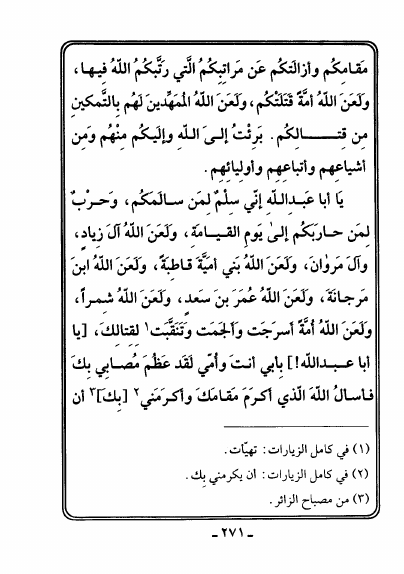 مَقامِكُم وأزالَتكُم عَن مَراتِبِكُمُ الَّتي رَتَّبَكُمُ اللهُ فيها،
ولَعَنَ اللهُ أمَّةً قَتَلَتْكُم، ولَعَنَ اللهُ المُمَهِّدينَ لَهُم بِالتَّمكينِ
مِن قِتـالِكُم. بَرِئْتُ إلىَ اللهِ وإلَيكُم مِنْهُم ومَن
أشياعِهم وأتباعِهم وأوليائِهم.
يَا أبا عَبدِاللهِ إنّي سِلْمٌ لِمَن سالَمَكُم، وحَرْبٌ
لِمَن حارَبَكُم إلىٰ يَومِ القيـامَةِ، ولَعَنَ اللهُ آلَ زِيادٍ،
وآلَ مَروَانَ، ولَعَنَ اللهُ بَني أمَيَّةَ قاطِبَةً، ولَعَنَ اللهُ ابنَ
مَرجانَةَ، ولَعَنَ اللهُ عُمَرَ بنَ سَعدٍ، ولَعَنَ اللهُ شمـراً،
ولَعَنَ اللهُ أمَّةً أسرَجَت وَألجَمَت وتَنَقَّبَت١ لِقِتالِكَ، [يا
أبا عَبـدِالله!] بِأبي أنتَ وأمّي لَقَد عَظُمَ مُصـابي بِكَ
فَاسألُ اللهَ الَّذي أكـرَمَ مَقـامَكَ وأكـرَمَني٢ [بِكَ]٣ أن
(١) في كامل الزيارات: تهيّات.
(٢) في كامل الزيارات: أن يكرمني بِك.
(٣) من مصباح الزائر.
ـ ٢٧١ ـ